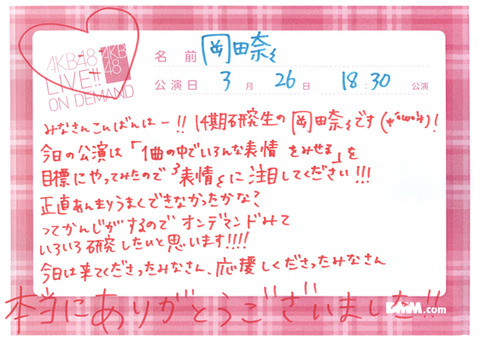 AKB48
LIVE!!
ON DEMAND
AKB
48
名前 岡田奈々
公演日 3月26日 18:30公演
みなさんこんばんはー!! 14期研究生の岡田奈々です(*^ω^*)!
今日の公演は「1曲の中でいろんな表情をみせる」を
目標にやってみたので表情に注目してください!!!
正直あんまりうまくできなかったかな?
ってかんじがするのでオンデマンドみて
いろいろ研究したいと思います!!!!
今日は来てくださったみなさん、応援してくださったみなさん
本当にありがとうございました!!
DMM.com